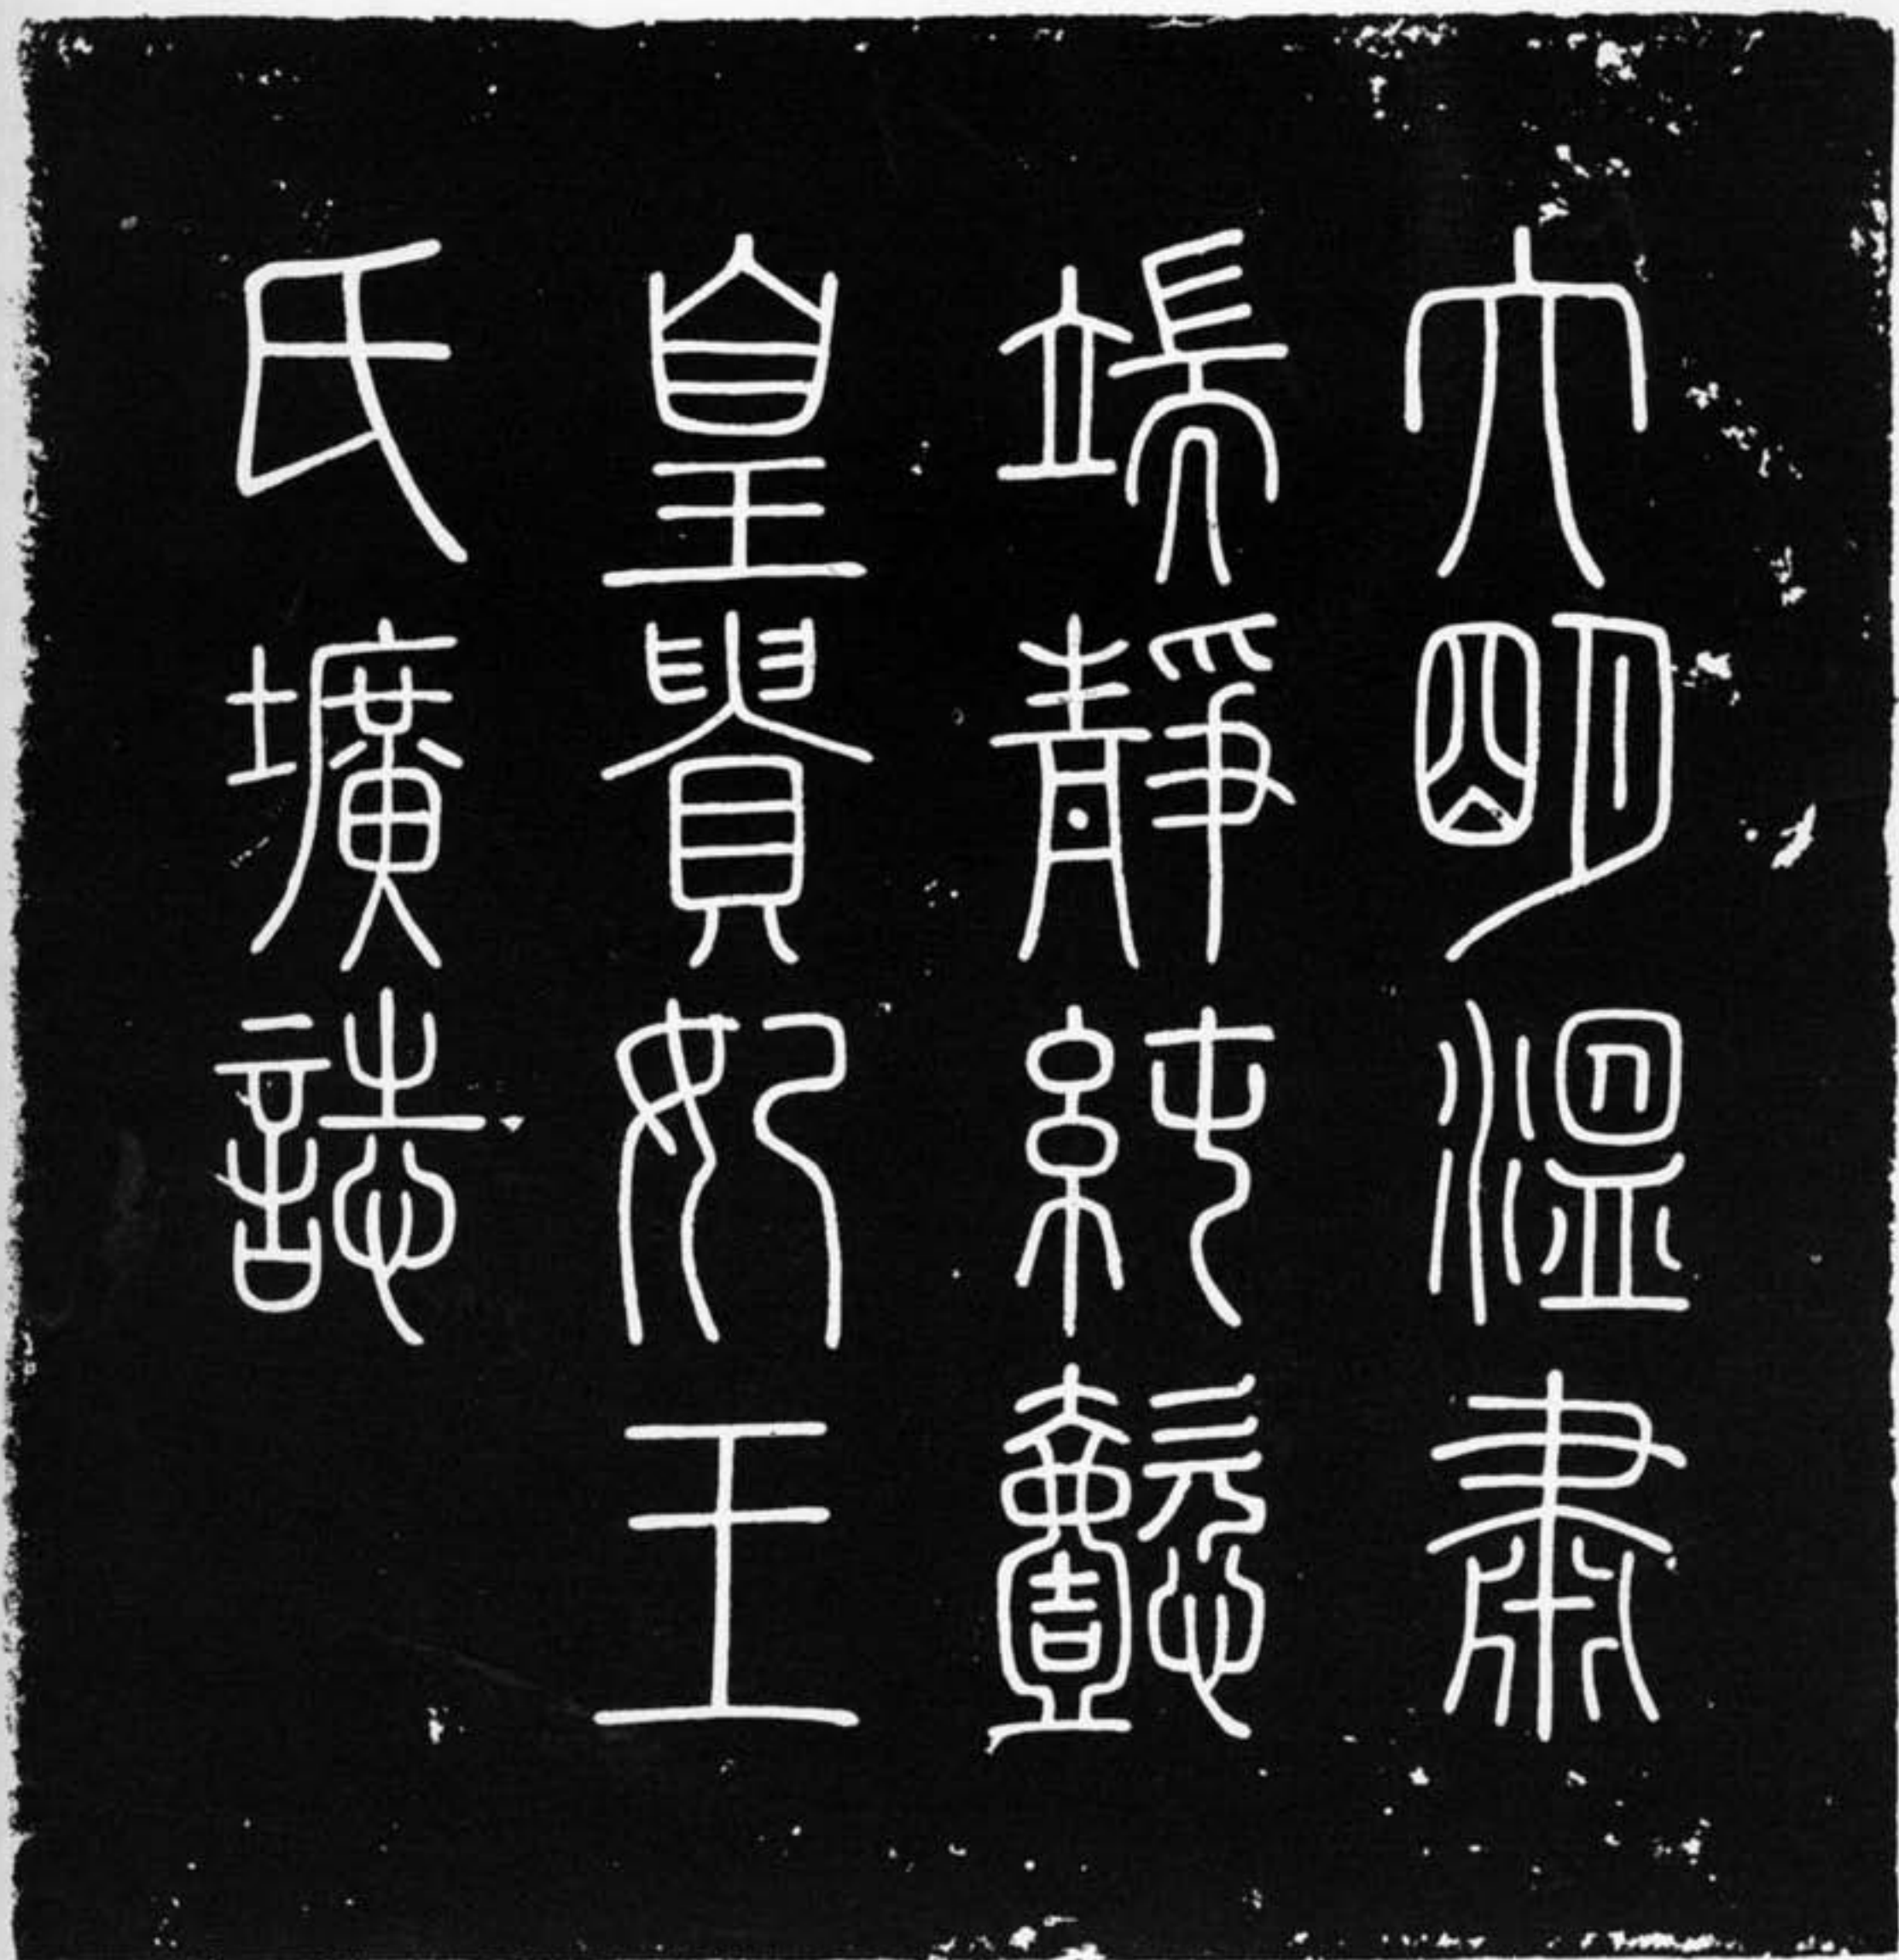 大明溫肅
端靜純懿
皇貴妃王
氏壙誌